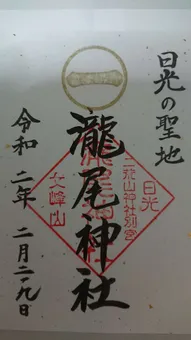 日光の聖地
一
瀧尾神社
日光
二荒山神社別宮
女峰山
令和 二年 二月二九日